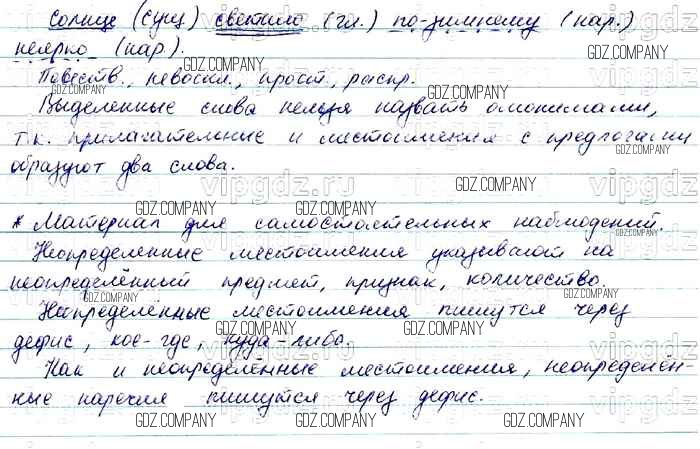 Солнце (сущ.) светило (гл.) по-зимнему (нар.)
неярко (нар.).
Повеств., невоскл., прост., распр.
Выделенные слова нельзя назвать омонимами,
т.к. прилагательные и местоимения с предлогами
образуют два слова.
* Материал для самостоятельных наблюдений.
Неопределенные местоимения указывают на
неопределённый предмет, признак, количество.
Неопределённые местоимения пишутся через
дефис, кое-где, куда-либо.
Как и неопределённые местоимения, неопределён-
ные наречия пишутся через дефис.